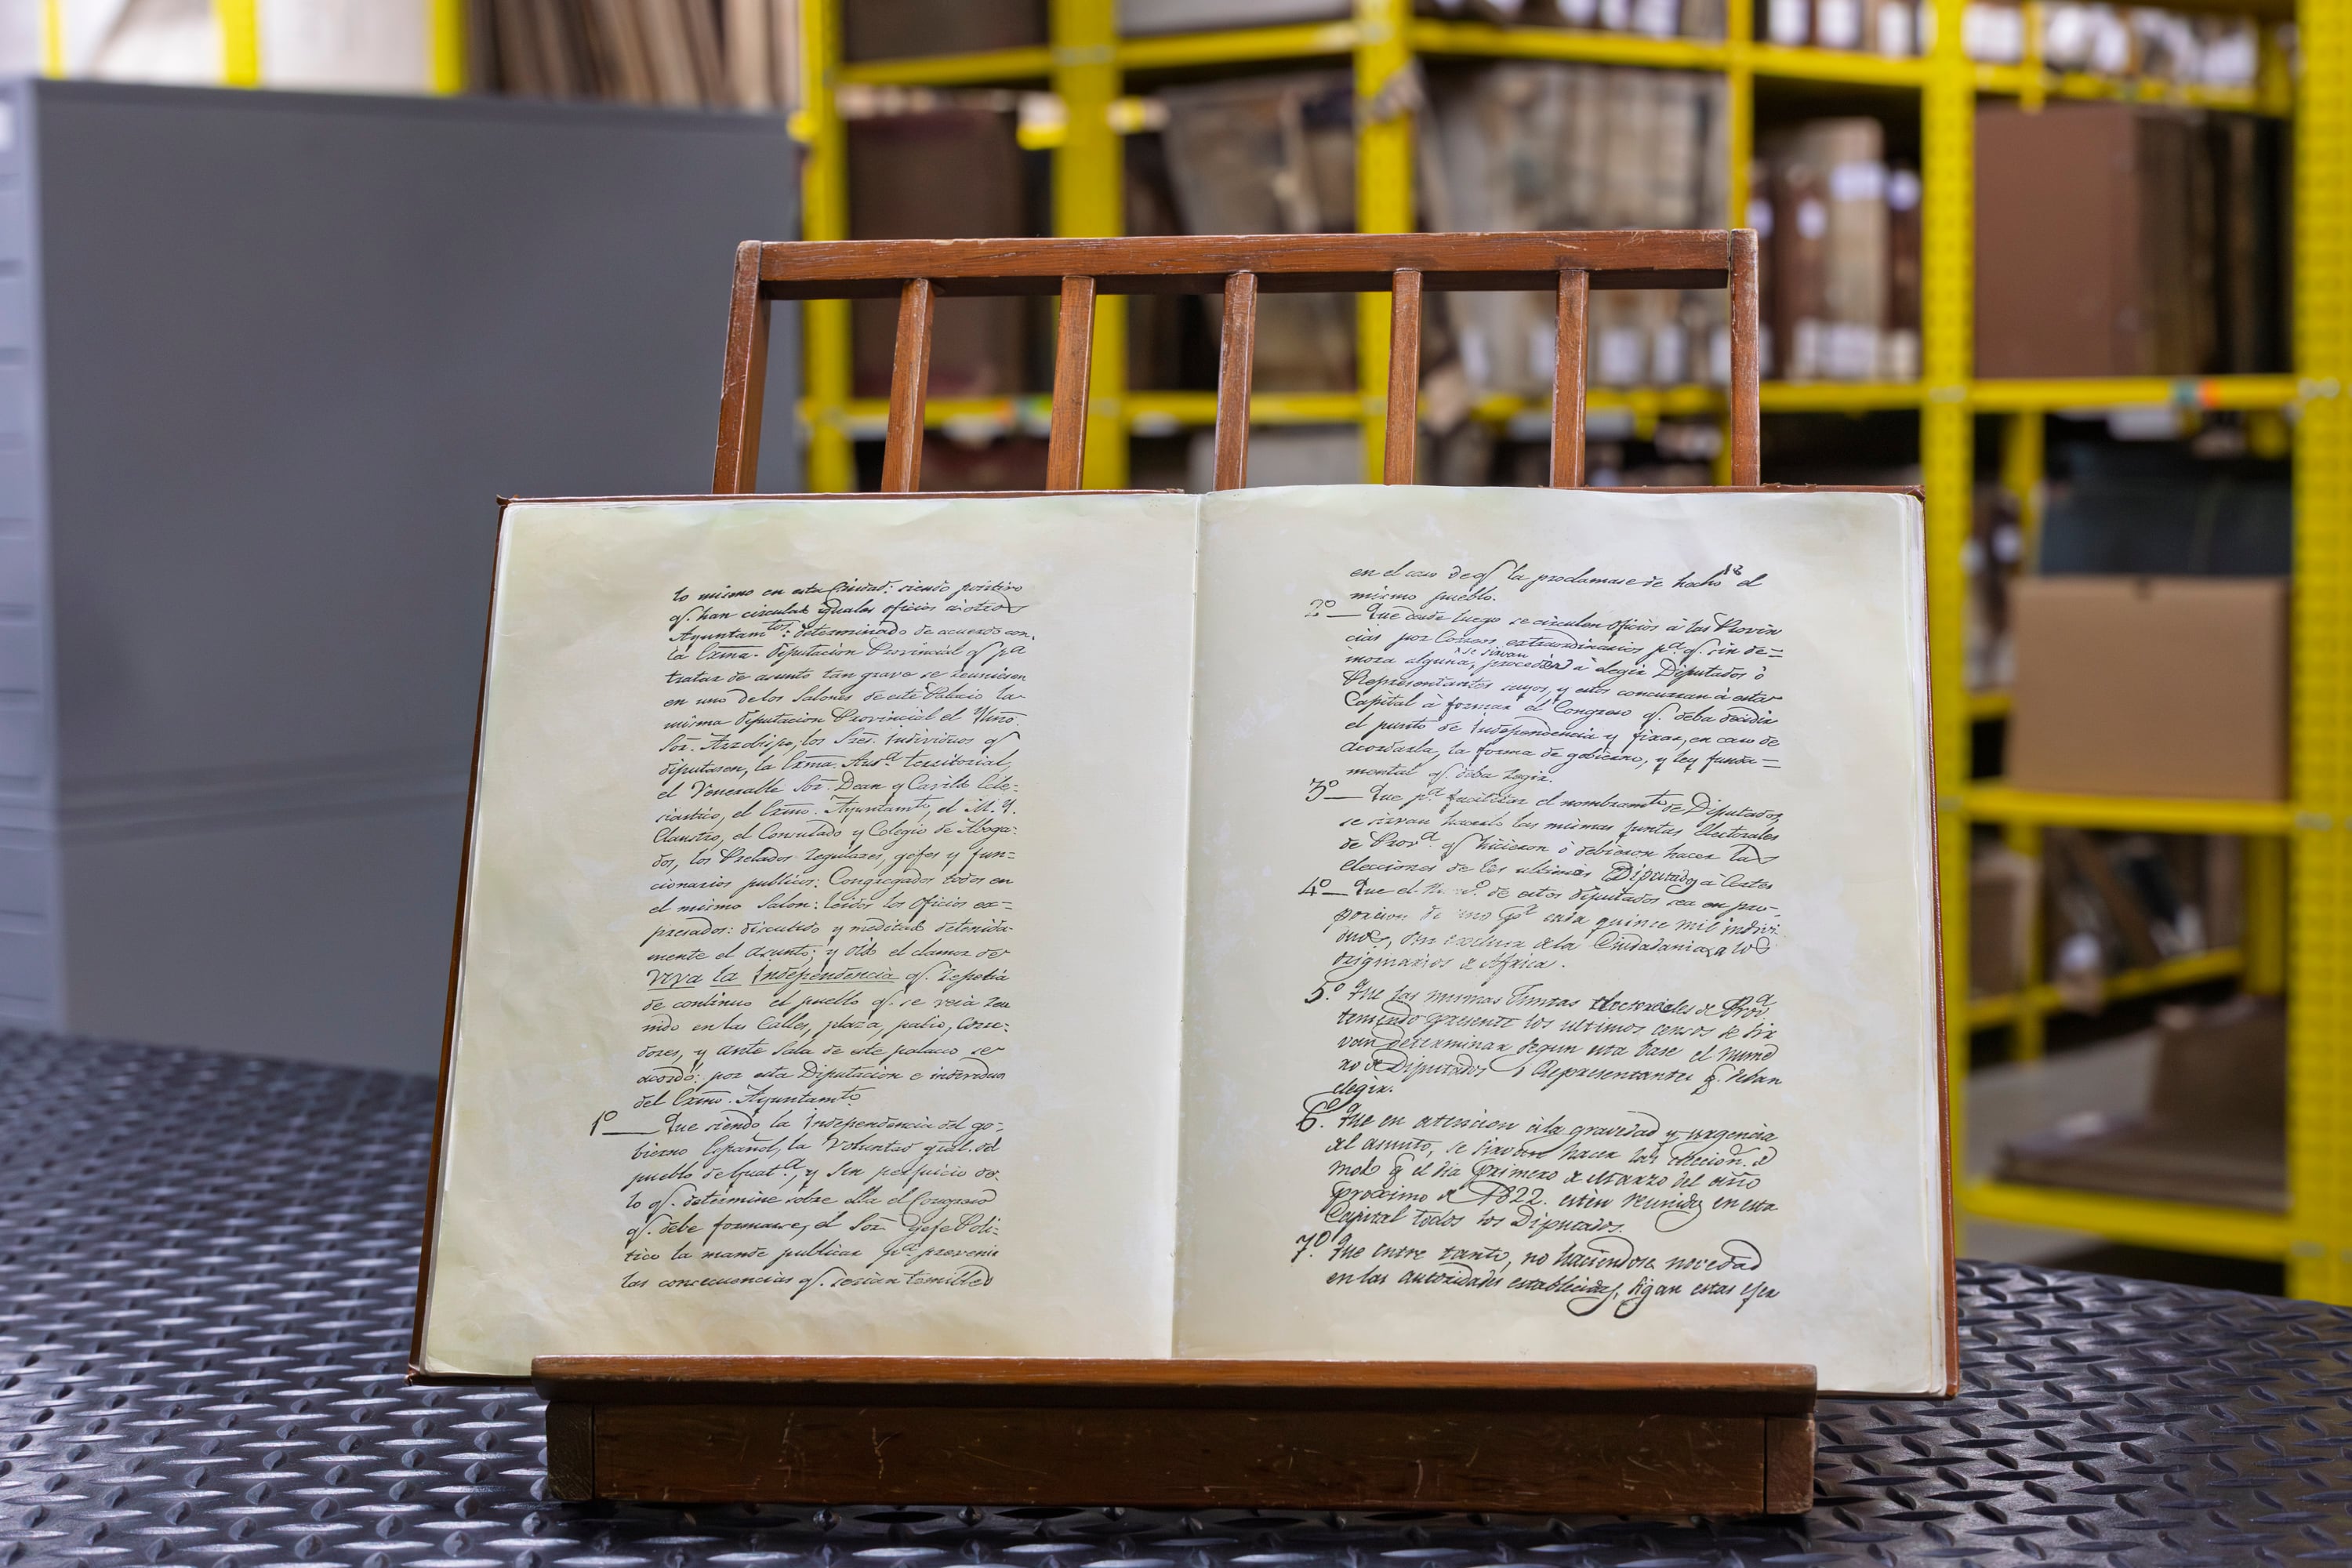 lo mismo en esta Ciudad: siendo positivo
q.e han circulado iguales oficios a otros
Ayuntam.tos: determinado de acuerdo con
la Exma. Diputacion Provincial q.e p.a
tratar de asunto tan grave se reuniesen
en uno de los Salones de este Palacio la
misma Diputacion Provincial el Yllmo.
Sor. Arzobispo, los Sres. Individuos q.e
diputasen, la Exma. Aud.a territorial,
el Venerable Sor. Dean y Cavildo Ecle-
siastico, el Exmo. Ayuntamto, el M. Y.
Claustro, el Consulado y Colegio de Aboga-
dos, los Prelados Regulares, gefes y fun=
cionarios publicos: Congregados todos en
el mismo Salon: leidos los oficios ex=
presados: discutido y meditado detenida-
mente el asunto; y oido el clamor de
Viva la Independencia q.e repetia
de continuo el pueblo q.e se veia reu
nido en las Calles, plaza, patio, Corre-
dores, y ante Sala de este palacio se
acordó: por esta Diputacion e individuos
del Exmo. Ayuntamto
1º— Que siendo la Independencia del go-
bierno Español, la Voluntad gral. del
pueblo de Guat.a, y sin perjuicio de
lo q.e determine sobre ella el Congreso
q.e debe formarse, el Sor. Gefe Poli-
tico la mande publicar p.a prevenir
las consecuencias q.e serian temibles
en el caso de q.e la proclamase de hecho el
mismo pueblo.
2º— Que desde luego se circulen oficios á las Provin
cias por Correos extraordinarios p.a q.e sin de=
mora alguna, se sirvan proceder á elegir Diputados ó
Representantes suyos, y estos concurran á esta
Capital á formar el Congreso q.e deba decidir
el punto de Independencia y fixar, en caso de
acordarla, la forma de gobierno, y ley funda=
mental q.e deba regir.
3º— Que p.a facilitar el nombramto de Diputados,
se sirvan hacerlo las mismas juntas Electorales
de Prov.a q.e hicieron ó debieron hacer las
elecciones de los ultimos Diputados á Cortes
4º— Que el de estos diputados sea en pro-
porcion de uno por cada quince mil indivi
duos, sin excluir de la Ciudadania a los
originarios de Africa.
5.º Que las mismas Juntas electorales de Prov.a
teniendo presente los ultimos censos se sir
van determinar segun esta base el nume
ro de Diputados ó Representantes q.e deban
elegir.
6.º Que en atencion á la gravedad y urgencia
del asunto, se sirvan hacer las eleccion.s de
modo q.e el dia primero de Marzo del año
proximo de 1822. estén reunidos en esta
Capital todos los Diputados.
7.º Que entre tanto, no haciendose novedad
en las autoridades establecidas, sigan estas exer